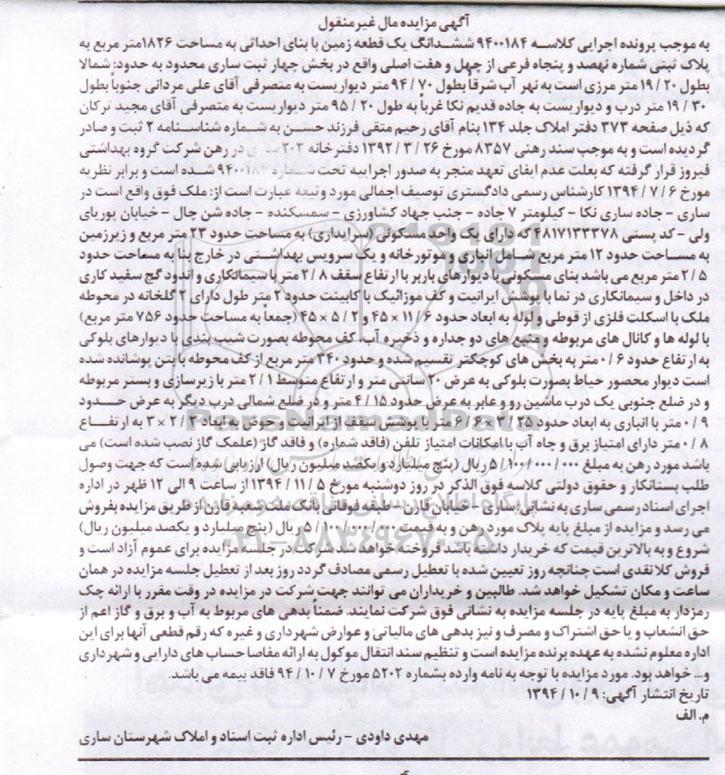 آگهی مزایده مال غیرمنقول
به موجب پرونده اجرایی کلاسه ۹۴۰۰۱۸۴ ششدانگ یک قطعه زمین با بنای احداثی به مساحت ۱۸۲۶متر مربع به
پلاک ثبتی شماره نهصد و پنجاه فرعی از چهل و هفت اصلی واقع در بخش چهار ثبت ساری محدود به حدود: شمالا
بطول ۲۰ / ۱۹ متر مرزی است به نهر آب شرقاً بطول ۷۰ / ۹۴ متر دیواریست به متصرفی آقای علی مردانی جنوباً بطول
۳۰ / ۱۹ متر درب و دیواریست به جاده قدیم نکا غرباً به طول ۲۰ / ۹۵ متر دیواریست به متصرفی آقای مجید ترکان
که ذیل صفحه ۳۷۳ دفتر املاک جلد ۱۳۴ بنام آقای رحیم متقی فرزند حسن به شماره شناسنامه ۲ ثبت و صادر
گردیده است و به موجب سند رهنی ۸۳۵۷ مورخ ۲۶ / ۳ / ۱۳۹۲ دفترخانه ۲۰۳ در رهن شرکت گروه بهداشتی
فیروز قرار گرفته که بعلت عدم ایفای تعهد منجر به صدور اجراییه تحت شماره ۹۴۰۰۱۸۴ شده است و برابر نظریه
مورخ ۶ / ۷ / ۱۳۹۴ کارشناس رسمی دادگستری توصیف اجمالی مورد وثیقه عبارت است از: ملک فوق واقع است در
ساری - جاده ساری نکا - کیلومتر ۷ جاده - جنب جهاد کشاورزی - سمسکنده - جاده شن چال - خیابان پوریای
ولی - کد پستی ۴۸۱۷۱۳۳۳۷۸ که دارای یک واحد مسکونی (سرایداری) به مساحت حدود ۲۳ متر مربع و زیرزمین
به مساحت حدود ۱۲ متر مربع شامل انباری و موتورخانه و یک سرویس بهداشتی در خارج بنا به مساحت حدود
۵ / ۲ متر مربع می باشد بنای مسکونی با دیوارهای باربر با ارتفاع سقف ۸ / ۲ متر با سیمانکاری و اندود گچ سفید کاری
در داخل و سیمانکاری در نما با پوشش ایرانیت و کف موزائیک با کابینت حدود ۲ متر طول دارای ۲ گلخانه در محوطه
ملک با اسکلت فلزی از قوطی و لوله به ابعاد حدود ۶ / ۱۱ × ۴۵ و ۲ / ۵ × ۴۵ (جمعا به مساحت حدود ۷۵۶ متر مربع)
با لوله ها و کانال های مربوطه و منبع های دو جداره و ذخیره آب، کف محوطه بصورت شیب بندی با دیوارهای بلوکی
به ارتفاع حدود ۶ / ۰ متر به بخش های کوچکتر تقسیم شده و حدود ۳۴۰ متر مربع از کف محوطه با بتن پوشانده شده
است دیوار محصور حیاط بصورت بلوکی به عرض ۲۰ سانتی متر و ارتفاع متوسط ۱ / ۲ متر با زیرسازی و بستر مربوطه
و در ضلع جنوبی یک درب ماشین رو و عابر به عرض حدود ۱۵ / ۴ متر و در ضلع شمالی درب دیگر به عرض حدود
۹ / ۰ متر با انباری به ابعاد حدود ۲۵ / ۲ × ۶ / ۶ متر با پوشش سقف از ایرانیت و حوض به ابعاد ۳ / ۲ × ۳ به ارتفاع
۸ / ۰ متر دارای امتیاز برق و چاه آب با امکانات امتیاز تلفن (فاقد شماره) و فاقد گاز (علمک گاز نصب شده است) می
باشد مورد رهن به مبلغ ۰۰۰/ ۰۰۰/ ۱۰۰/ ۵ ریال (پنج میلیارد و یکصد میلیون ریال) ارزیابی شده است که جهت وصول
طلب بستانکار و حقوق دولتی کلاسه فوق الذکر در روز دوشنبه مورخ ۵ / ۱۱ / ۱۳۹۴ از ساعت ۹ الی ۱۲ ظهر در اداره
اجرای اسناد رسمی ساری به نشانی: ساری - خیابان قارن - طبقه فوقانی بانک ملت شعبه قارن از طریق مزایده بفروش
می رسد و مزایده از مبلغ پایه پلاک مورد رهن و به قیمت ۰۰۰/ ۰۰۰/ ۱۰۰/ ۵ ریال (پنج میلیارد و یکصد میلیون ریال)
شروع و به بالاترین قیمت که خریدار داشته باشد فروخته خواهد شد شرکت در جلسه مزایده برای عموم آزاد است و
فروش کلا نقدی است چنانچه روز تعیین شده با تعطیل رسمی مصادف گردد روز بعد از تعطیل جلسه مزایده در همان
ساعت و مکان تشکیل خواهد شد. طالبین و خریداران می توانند جهت شرکت در مزایده در وقت مقرر با ارائه چک
رمزدار به مبلغ پایه در جلسه مزایده به نشانی فوق شرکت نمایند. ضمناً بدهی های مربوط به آب و برق و گاز اعم از
حق انشعاب و یا حق اشتراک و مصرف و نیز بدهی های مالیاتی و عوارض شهرداری و غیره که رقم قطعی آنها برای این
اداره معلوم نشده به عهده برنده مزایده است و تنظیم سند انتقال موکول به ارائه مفاصا حساب های دارایی و شهرداری
و... خواهد بود. مورد مزایده با توجه به نامه وارده بشماره ۵۲۰۲ مورخ ۷ / ۱۰ / ۹۴ فاقد بیمه می باشد.
تاریخ انتشار آگهی: ۹ / ۱۰ / ۱۳۹۴
م. الف
مهدی داودی - رئیس اداره ثبت اسناد و املاک شهرستان ساری
ParsNamadData
پایگاه اطلاع رسانی مناقصه و مزایده
۰۲۱-۸۸۳۴۹۶۷۰-۵